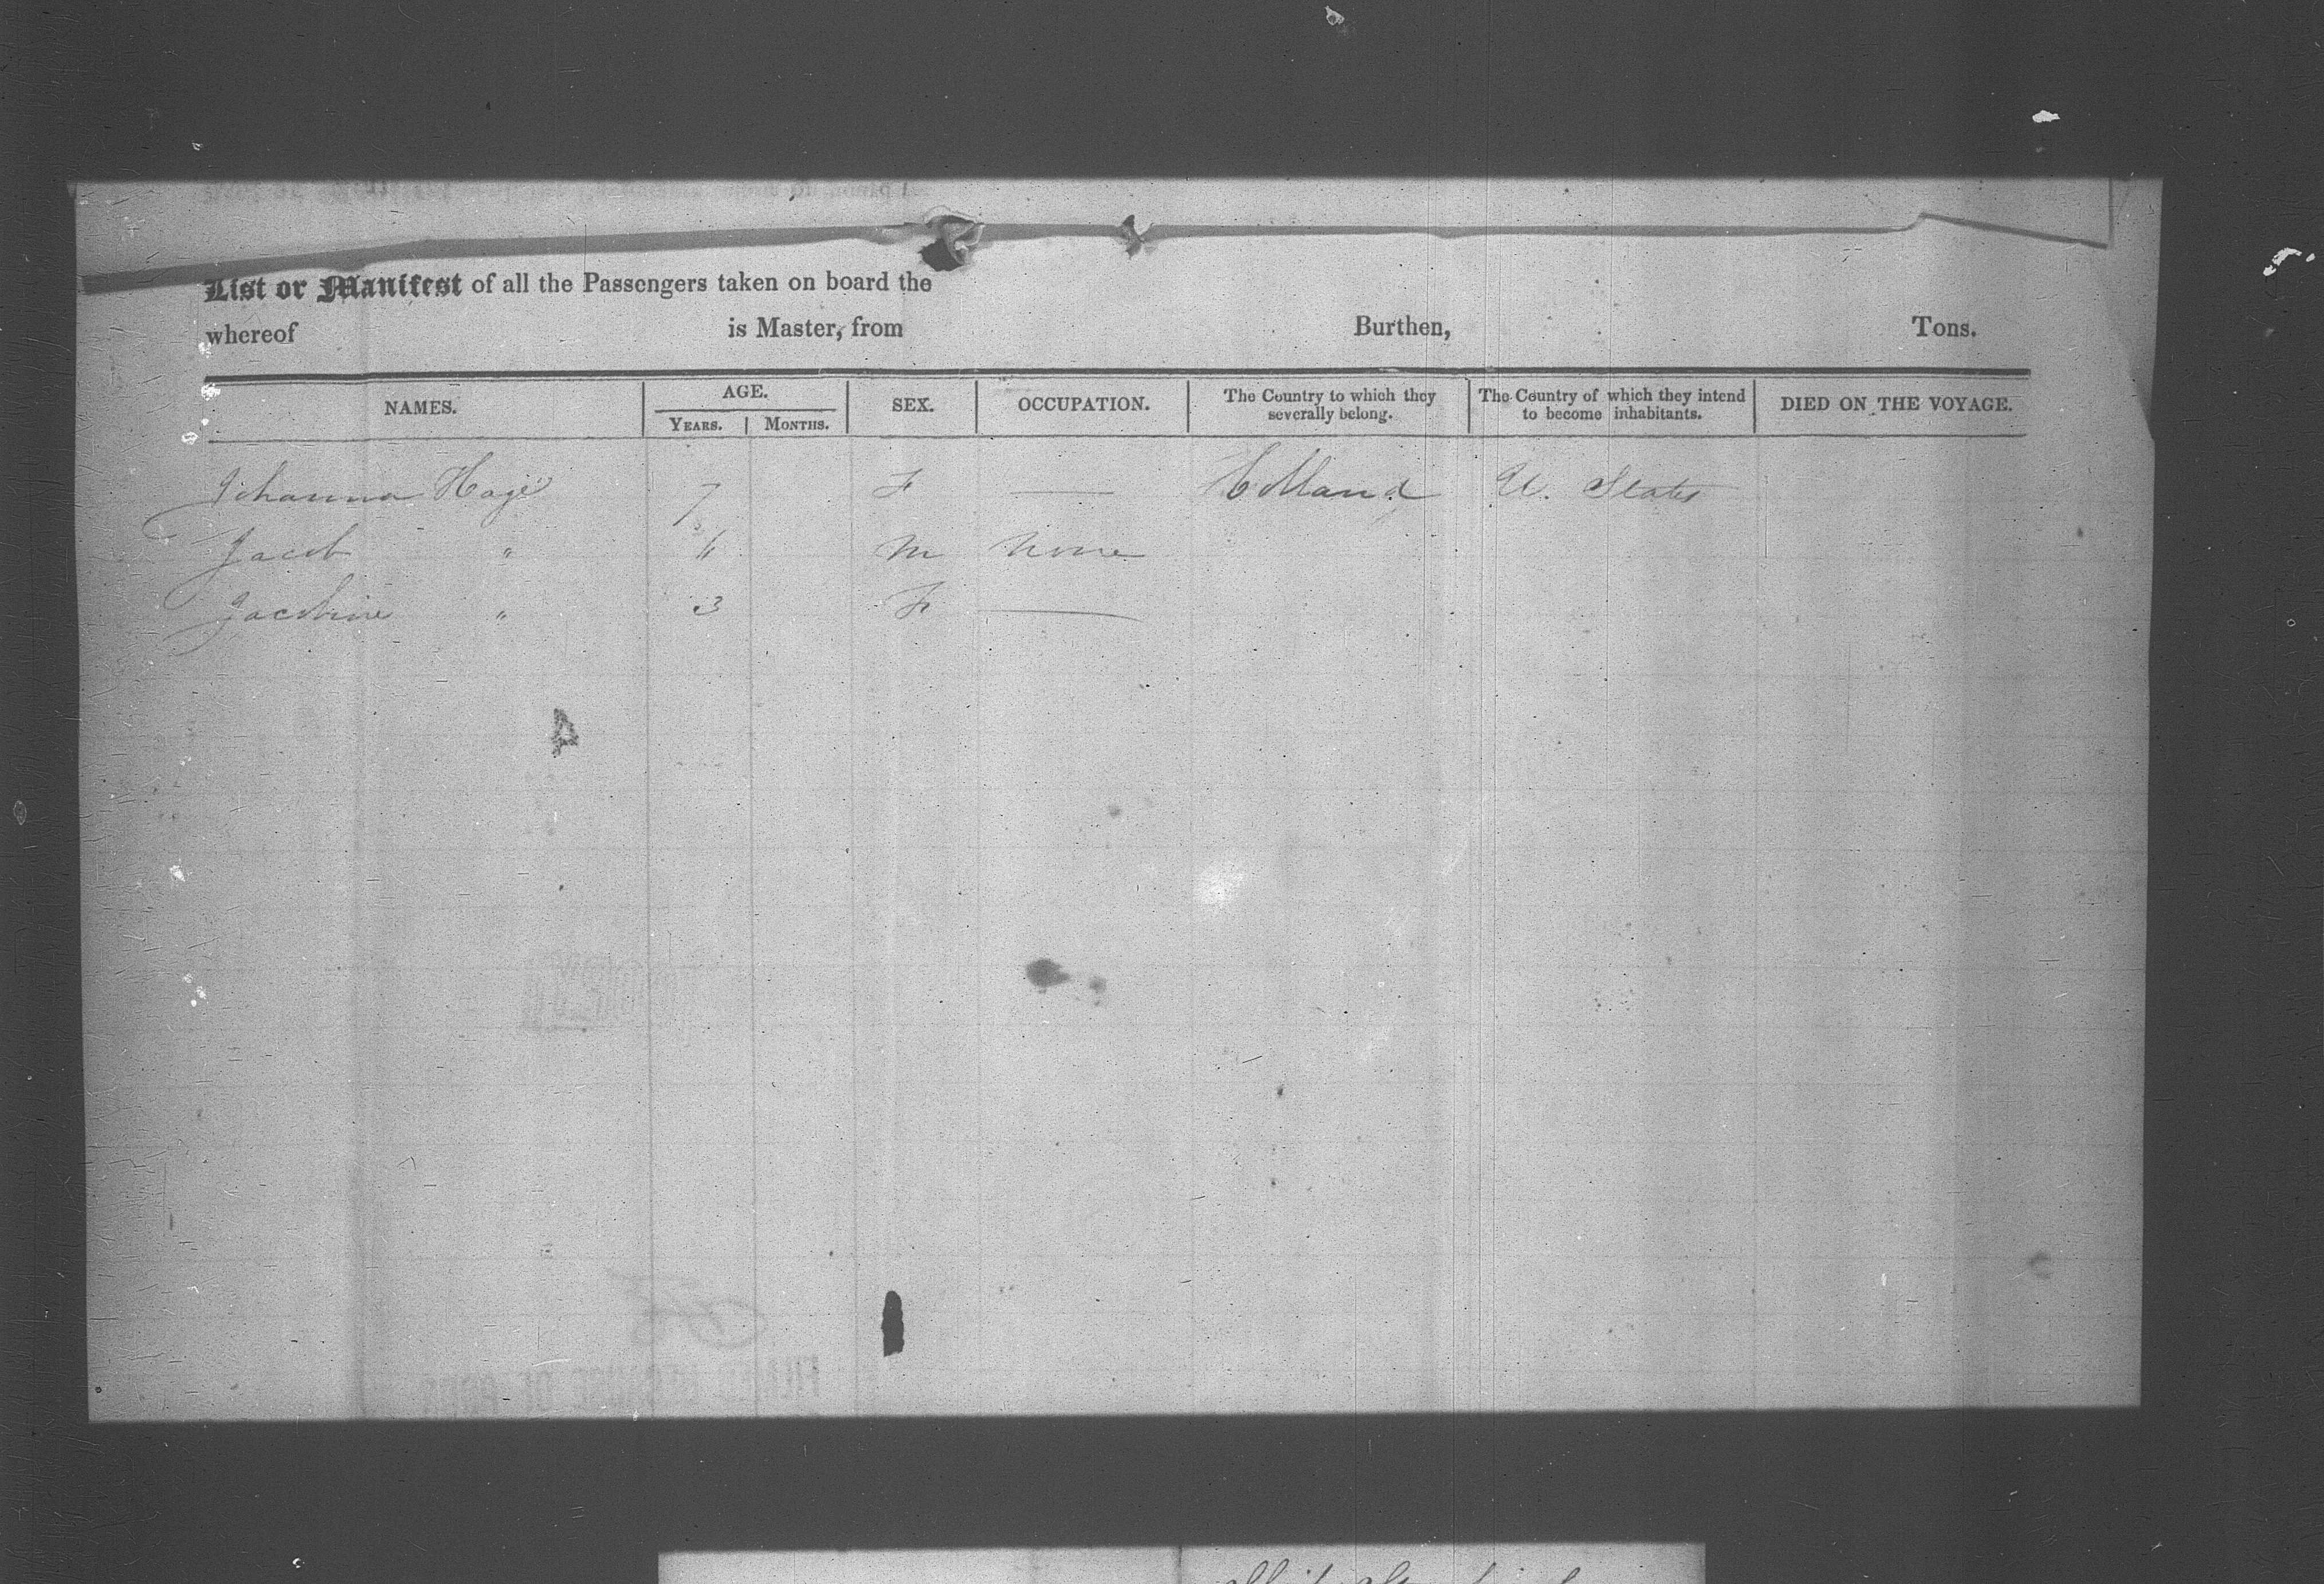 List or Manifest of all the Passengers taken on board the
whereof is Master, from Burthen, Tons.
NAMES. AGE. SEX. OCCUPATION. The Country to which they severally belong. The Country of which they intend to become inhabitants. DIED ON THE VOYAGE.
YEARS. MONTHS.
Johanna Hage 7 F — Holland U. States
Jacob " M None
Jacobine " 3 F —
4